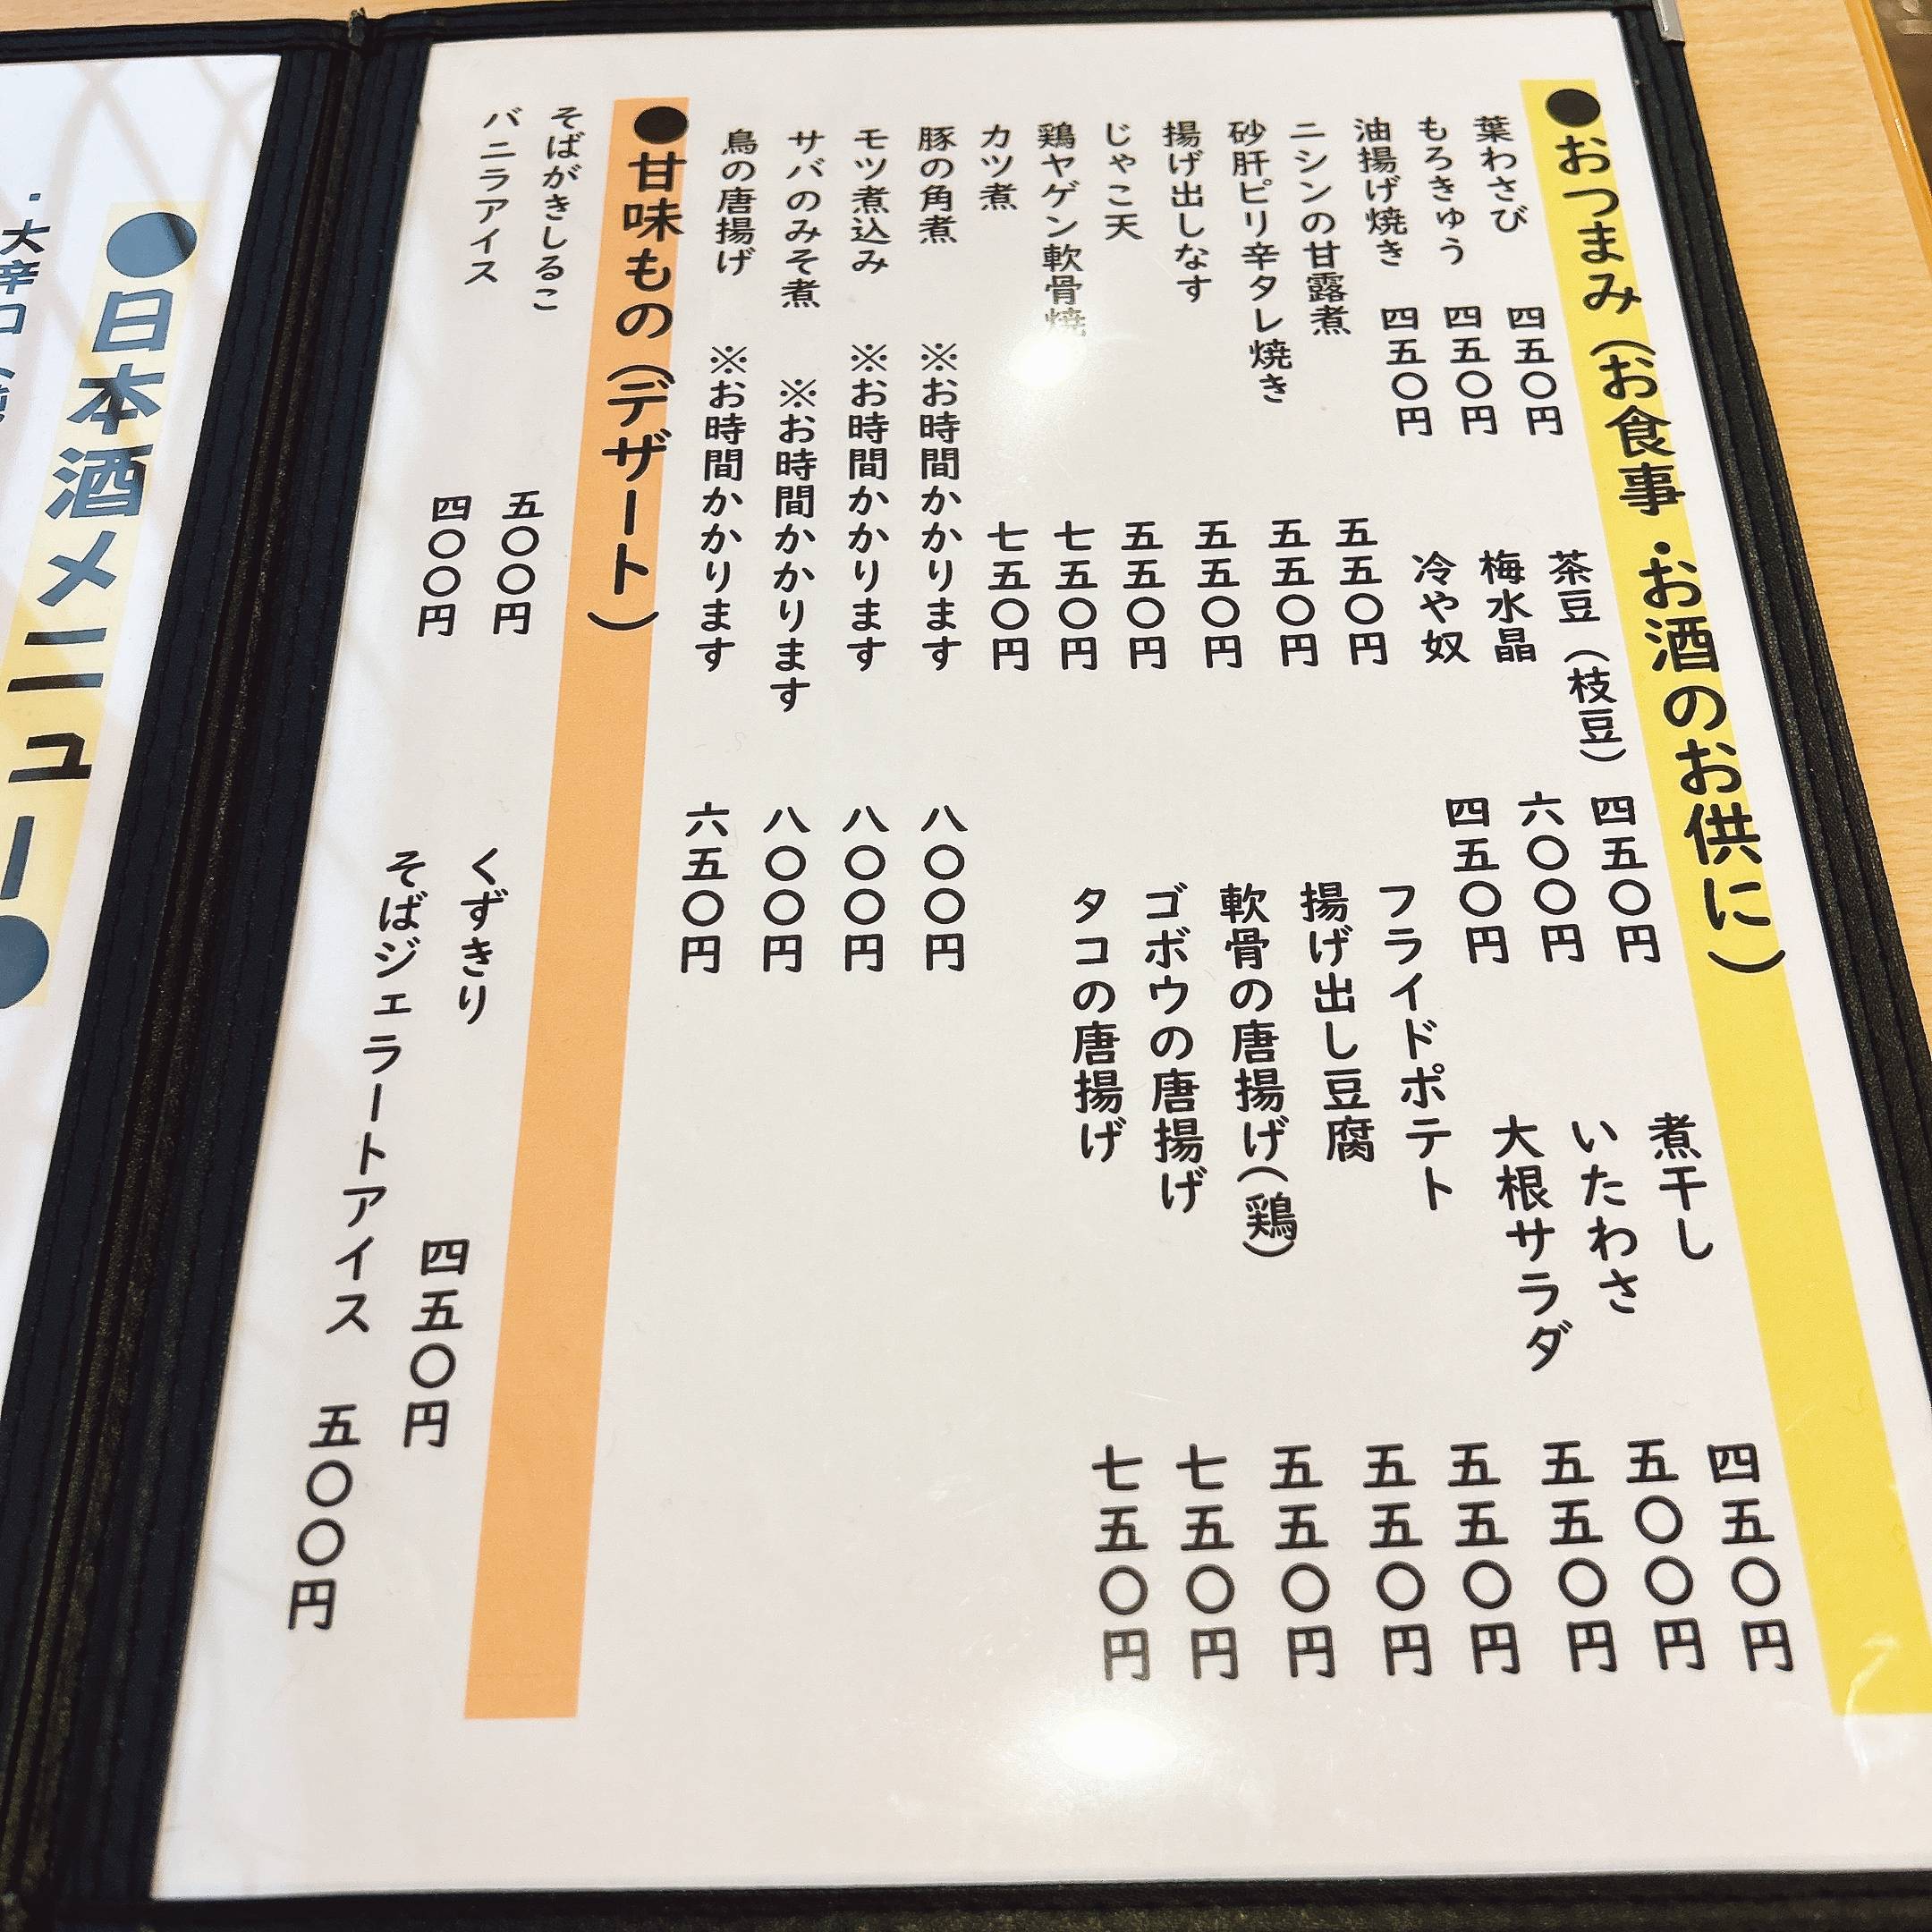 ●おつまみ（お食事・お酒のお供に）
葉わさび 四五〇円 茶豆（枝豆） 四五〇円 煮干し 四五〇円
もろきゅう 四五〇円 梅水晶 六〇〇円 いたわさ 五〇〇円
油揚げ焼き 四五〇円 冷や奴 四五〇円 大根サラダ 五五〇円
ニシンの甘露煮 五五〇円 フライドポテト 五五〇円
砂肝ピリ辛タレ焼き 五五〇円 揚げ出し豆腐 五五〇円
揚げ出しなす 五五〇円 軟骨の唐揚げ（鶏） 五五〇円
じゃこ天 五五〇円 ゴボウの唐揚げ 七五〇円
鶏ヤゲン軟骨焼 七五〇円 タコの唐揚げ 七五〇円
カツ煮 七五〇円
豚の角煮 ※お時間かかります 八〇〇円
モツ煮込み ※お時間かかります 八〇〇円
サバのみそ煮 ※お時間かかります 八〇〇円
鳥の唐揚げ ※お時間かかります 六五〇円
●甘味もの（デザート）
そばがきしるこ 五〇〇円 くずきり 四五〇円
バニラアイス 四〇〇円 そばジェラートアイス 五〇〇円
●日本酒メニュー●
・大辛口